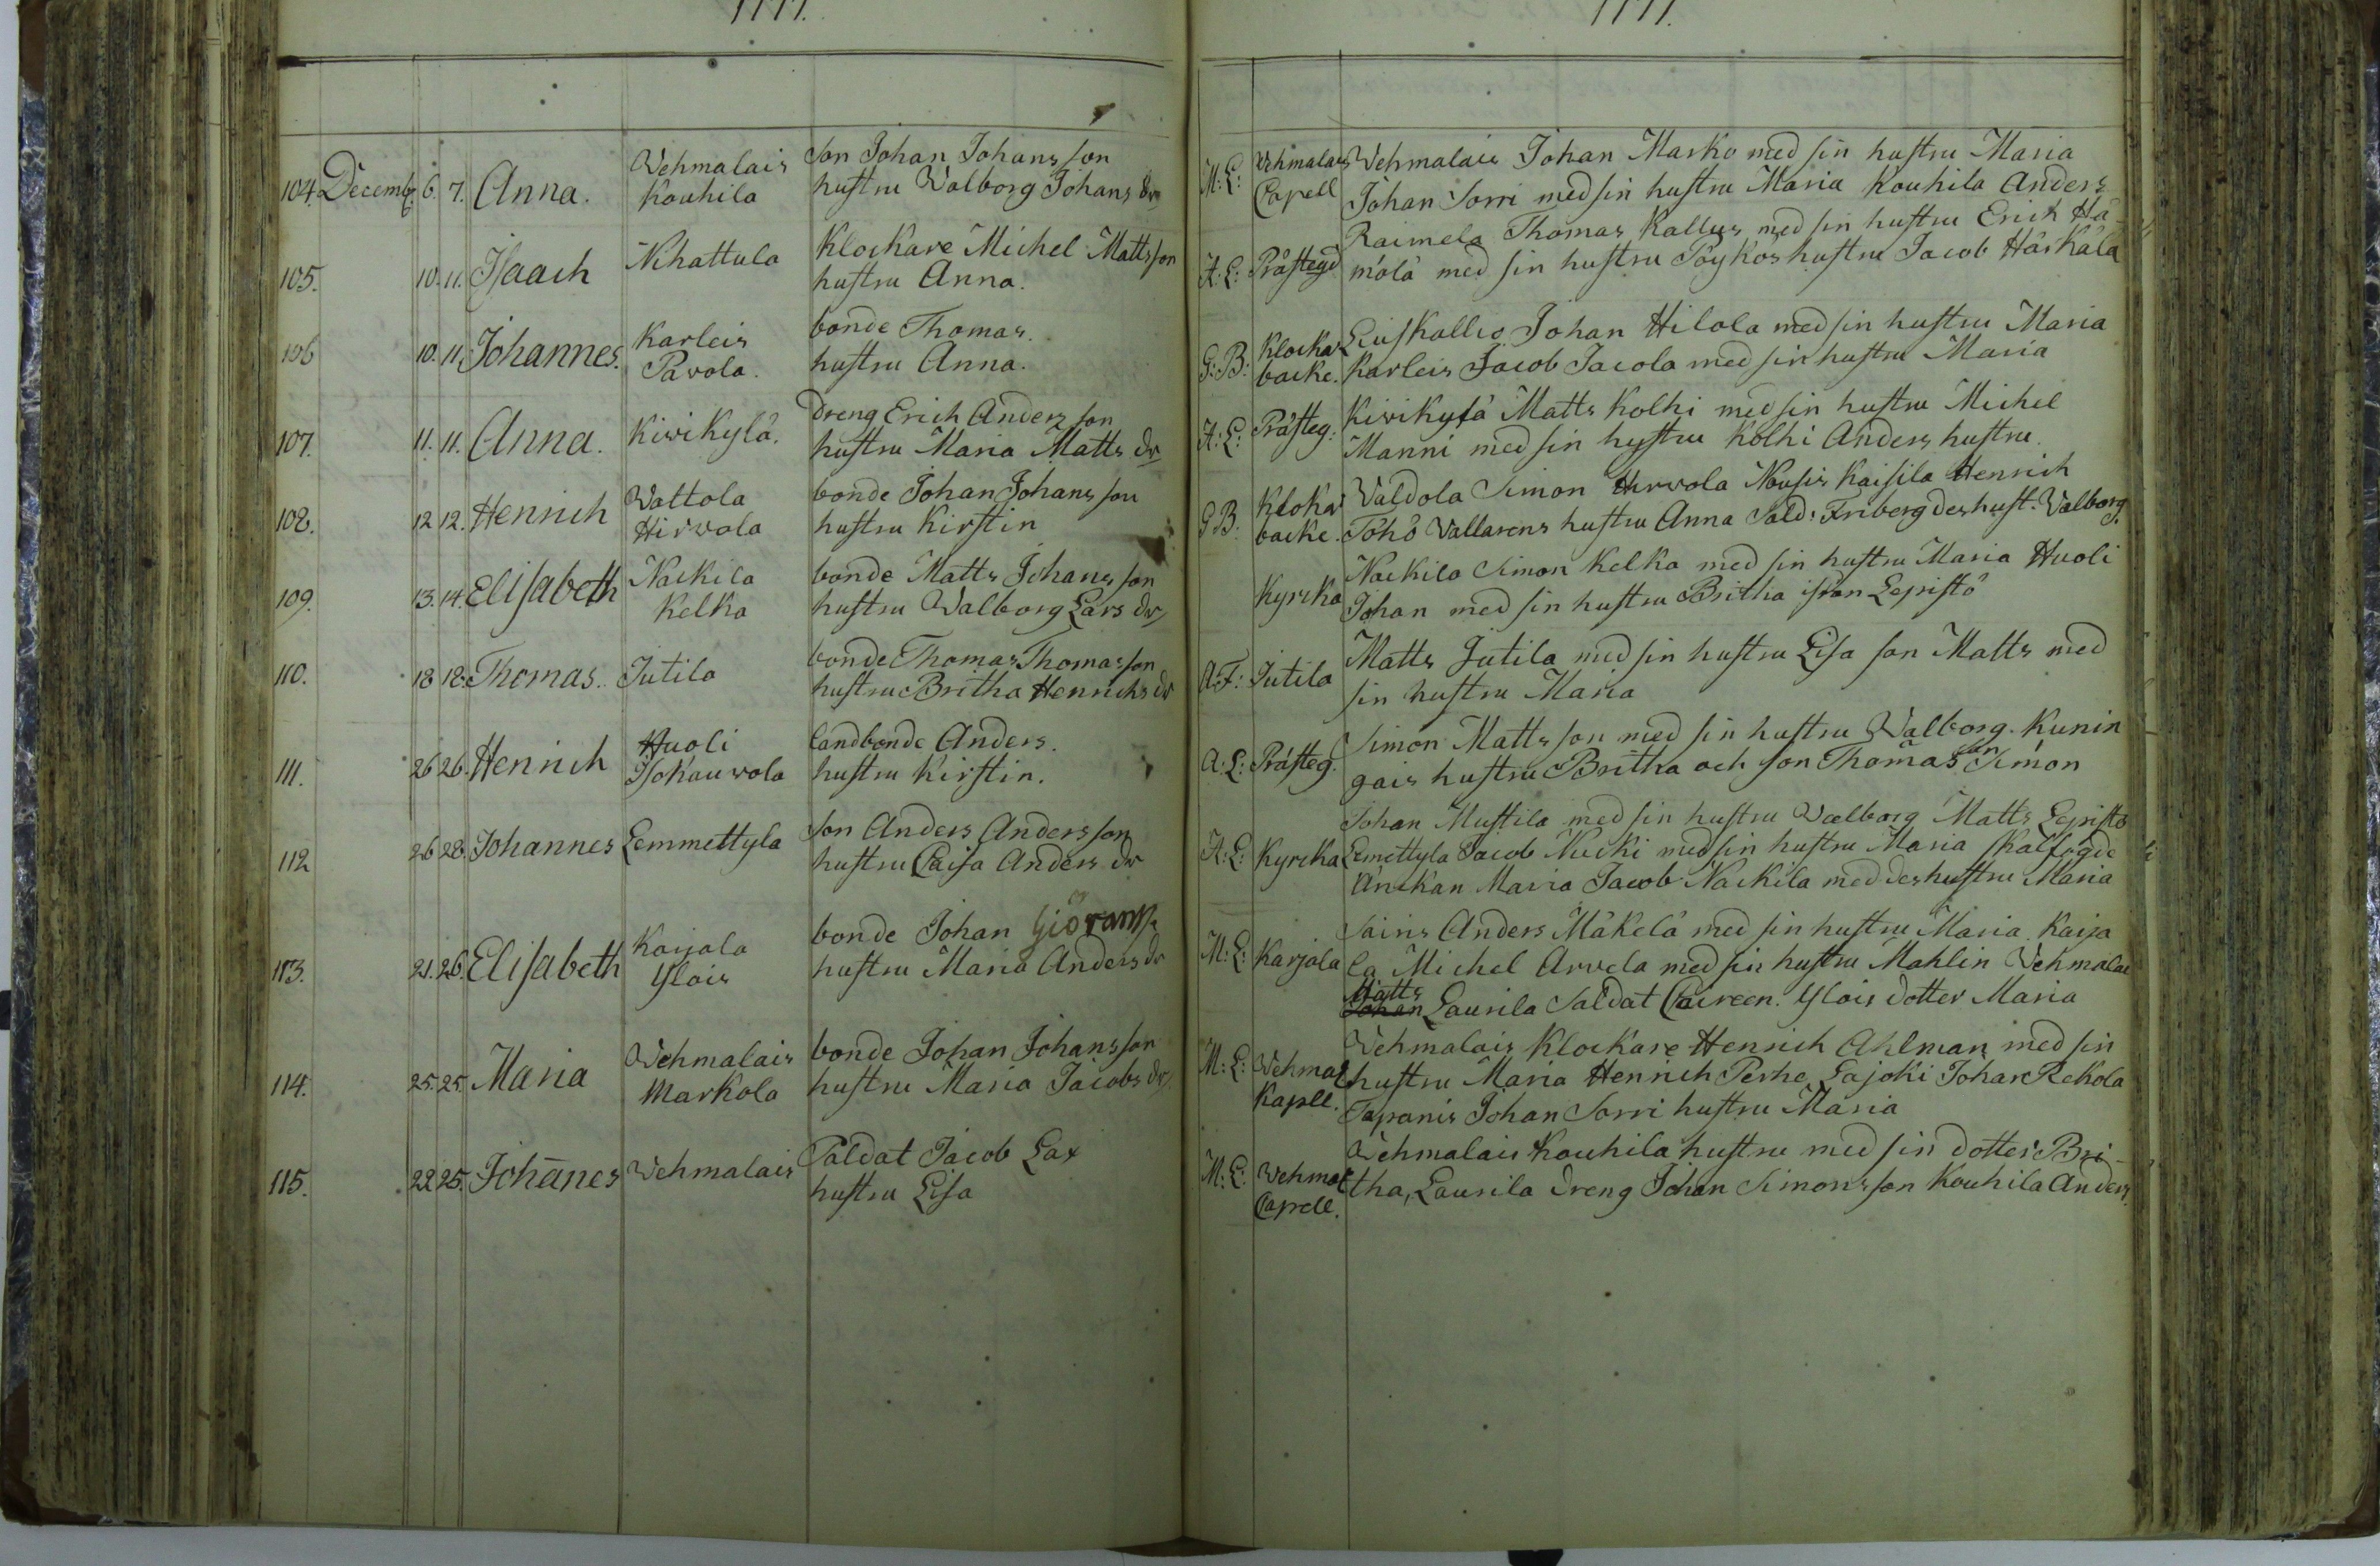 1777.
1777.
104. Decembr. 6. 7. Anna.
Wehmalais
Kouhila
Son Johan Johansson
hustru Walborg Johans dr
M: L: Wehmalais
Capell
Wehmalais Johan Marko med sin hustru Maria
Johan Sorri med sin hustru Maria Kouhila Anders
105. 10. 11. Isaach
Nihattula
Klockare Michel Mattsson
hustru Anna.
A: L: Prästegd
Raimela Thomas Kallus med sin hustru Erich Hä-
mälä med sin hustru Pöykös hustru Jacob Härkälä
106 10. 11. Johannes.
Karleis
Pavola.
bonde Thomas.
hustru Anna.
G: B: Klockar
backe.
Liuskallio Johan Hilola med sin hustru Maria
Karleis Jacob Jacola med sin hustru Maria
107. 11. 11. Anna.
Kivikylä.
Dreng Erich Andersson
hustru Maria Matts dr
A: L: Prästeg:
Kivikylä Matts Kolhi med sin hustru Michel
Manni med sin hustru Kolhi Anders hustru.
108. 12 12. Henrich
Wattola
Hirvola
bonde Johan Johansson
hustru Kirstin
G B. Klokar
backe.
Valdola Simon Hirvola Nousis Kaisila Henrich
Töhö Vallarens hustru Anna Sald: Friberg des hust. Valborg.
109. 13. 14. Elisabeth
Nackila
Kelka
bonde Matts Johansson
hustru Walborg Lars dr
Kyrcka
Nackila Simon Kelka med sin hustru Maria Huoli
Johan med sin hustru Britha ifrån Lepistö
110. 18 18. Thomas.
Jutila
bonde Thomas Thomasson
hustru Britha Henrichs dr
A: F: Jutila
Matts Jutila med sin hustru Lisa son Matts med
sin hustru Maria
111. 26 26. Henrich
Huoli
Isokauvola
landbonde Anders.
hustru Kirstin.
A: L: Prästeg.
Simon Mattsson med sin hustru Walborg. Kunin
gais hustru Britha och son Thomas son Simon
112 26 28. Johannes
Lemmettyla
Son Anders Andersson
hustru Caisa Anders dr
A: L: Kyrcka
Johan Mustila med sin hustru Walborg Matts Lepistö
Lemettyla Jacob Nucki med sin hustru Maria Skalfogde
Änckan Maria Jacob Nackila med des hustru Maria
113. 21. 26. Elisabeth
Karjala
Ylais
bonde Johan Giöranss:
hustru Maria Anders dr
M: L: Karjala
Sains Anders Mäkelä med sin hustru Maria Karja
la Michel Arvela med sin hustru Mahlin Vehmalai
Matts
Johan Laurila Saldat Caireen. Ylais dotter Maria
114. 25. 25. Maria
Wehmalais
Markola
bonde Johan Johansson
hustru Maria Jacobs dr
M: L: Wehmal
Kapell.
Wehmalais Klockare Henrich Ahlman med sin
hustru Maria Henrich Perhe Lajoki Johan Rekola
Tapanis Johan Sorri hustru Maria
115. 22 25. Johanes
Wehmalais
Saldat Jacob Lax
hustru Lisa
M: L: Wehmal
Capell.
Wehmalais Kouhila hustru med sin dotter Bri-
tha, Laurila Dreng Johan Simonsson Kouhila Anders.